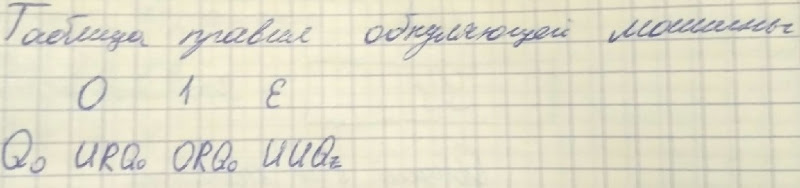 Таблица правил обнуляющей машины
0 1 ε
Q₀ HRQ₀ 0RQ₀ HHQz